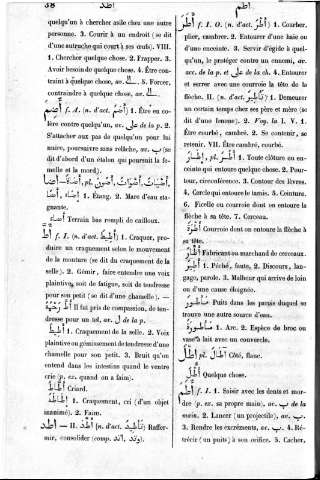 38 أطد
quelqu'un à chercher asile chez une autre
personne. 3. Courir à un endroit (se dit
d'une autruche qui court à ses œufs). VIII.
1. Chercher quelque chose. 2. Frapper. 3.
Avoir besoin de quelque chose. 4. Être con-
traint à quelque chose, ac. إلى. 5. Forcer,
contraindre à quelque chose, ac. إلى.
f. A. (n. d'act. أضم) 1. Être en co-
lère contre quelqu'un, av. على de la p. 2.
S'attacher aux pas de quelqu'un pour lui
nuire, poursuivre sans relâche, av. ب (se
dit d'abord d'un étalon qui poursuit la fe-
melle et la mord).
أضاة pl.
1. Étang. 2. Mare d'eau sta-
gnante.
Terrain bas rempli de cailloux.
أط f. I. (n. d'act. أطيط) 1. Craquer, pro-
duire un craquement selon le mouvement
de la monture (se dit du craquement de la
selle). 2. Gémir, faire entendre une voix
plaintive, soit de fatigue, soit de tendresse
pour son petit (se dit d'une chamelle). —
Il fut pris de compassion, de ten-
dresse pour un tel, av. ل de la p.
أطيط 1. Craquement de la selle. 2. Voix
plaintive ou gémissement de tendresse d'une
chamelle pour son petit. 3. Bruit qu'on
entend dans les intestins quand le ventre
crie (p. ex. quand on a faim).
أطاط Criard.
1. Craquement, cri (d'un objet
inanimé). 2. Faim.
أطد — II. أطد (n. d'act. تأطيد) Raffer-
mir, consolider (comp.
أطم
أطر f. I. O. (n. d'act. أطر) 1. Courber,
plier, cambrer. 2. Entourer d'une haie ou
d'une enceinte. 3. Servir d'égide à quel-
qu'un, le protéger contre un ennemi, av.
acc. de la p. et على de la ch. 4. Entourer
et serrer avec une courroie la tête de la
flèche. II. (n. d'act. تأطير) 1. Demeurer
un certain temps chez son père et mère (se
dit d'une femme). 2. Voy. la I. V. 1.
Être courbé, cambré. 2. Se contenir, se
retenir. VII. Être cambré, courbé.
إطار, pl. أطر 1. Toute clôture ou en-
ceinte qui entoure quelque chose. 2. Pour-
tour, circonférence. 3. Contour des lèvres.
4. Cercle qui entoure le tamis. 5. Ceinture.
6. Ficelle ou courroie dont on entoure la
flèche à sa tête. 7. Cerceau.
أطرة Courroie dont on entoure la flèche à
sa tête.
Fabricants ou marchand de cerceaux.
أطير 1. Péché, faute. 2. Discours, lan-
gage, parole. 3. Malheur qui arrive de loin
ou d'une cause éloignée.
مأطور Puits dans les parois duquel se
trouve une autre source d'eau.
مأطورة 1. Arc. 2. Espèce de broc ou
vase à lait avec un couvercle.
إطل pl. آطال Côté, flanc.
أطل Quelque chose.
أطم f. I. 1. Saisir avec les dents et mor-
dre (p. ex. sa propre main), av. ب de la
main. 2. Lancer (un projectile), av. ب.
3. Rendre les excréments, av. ب. 4. Ré-
trécir (un puits) à son orifice. 5. Cacher,